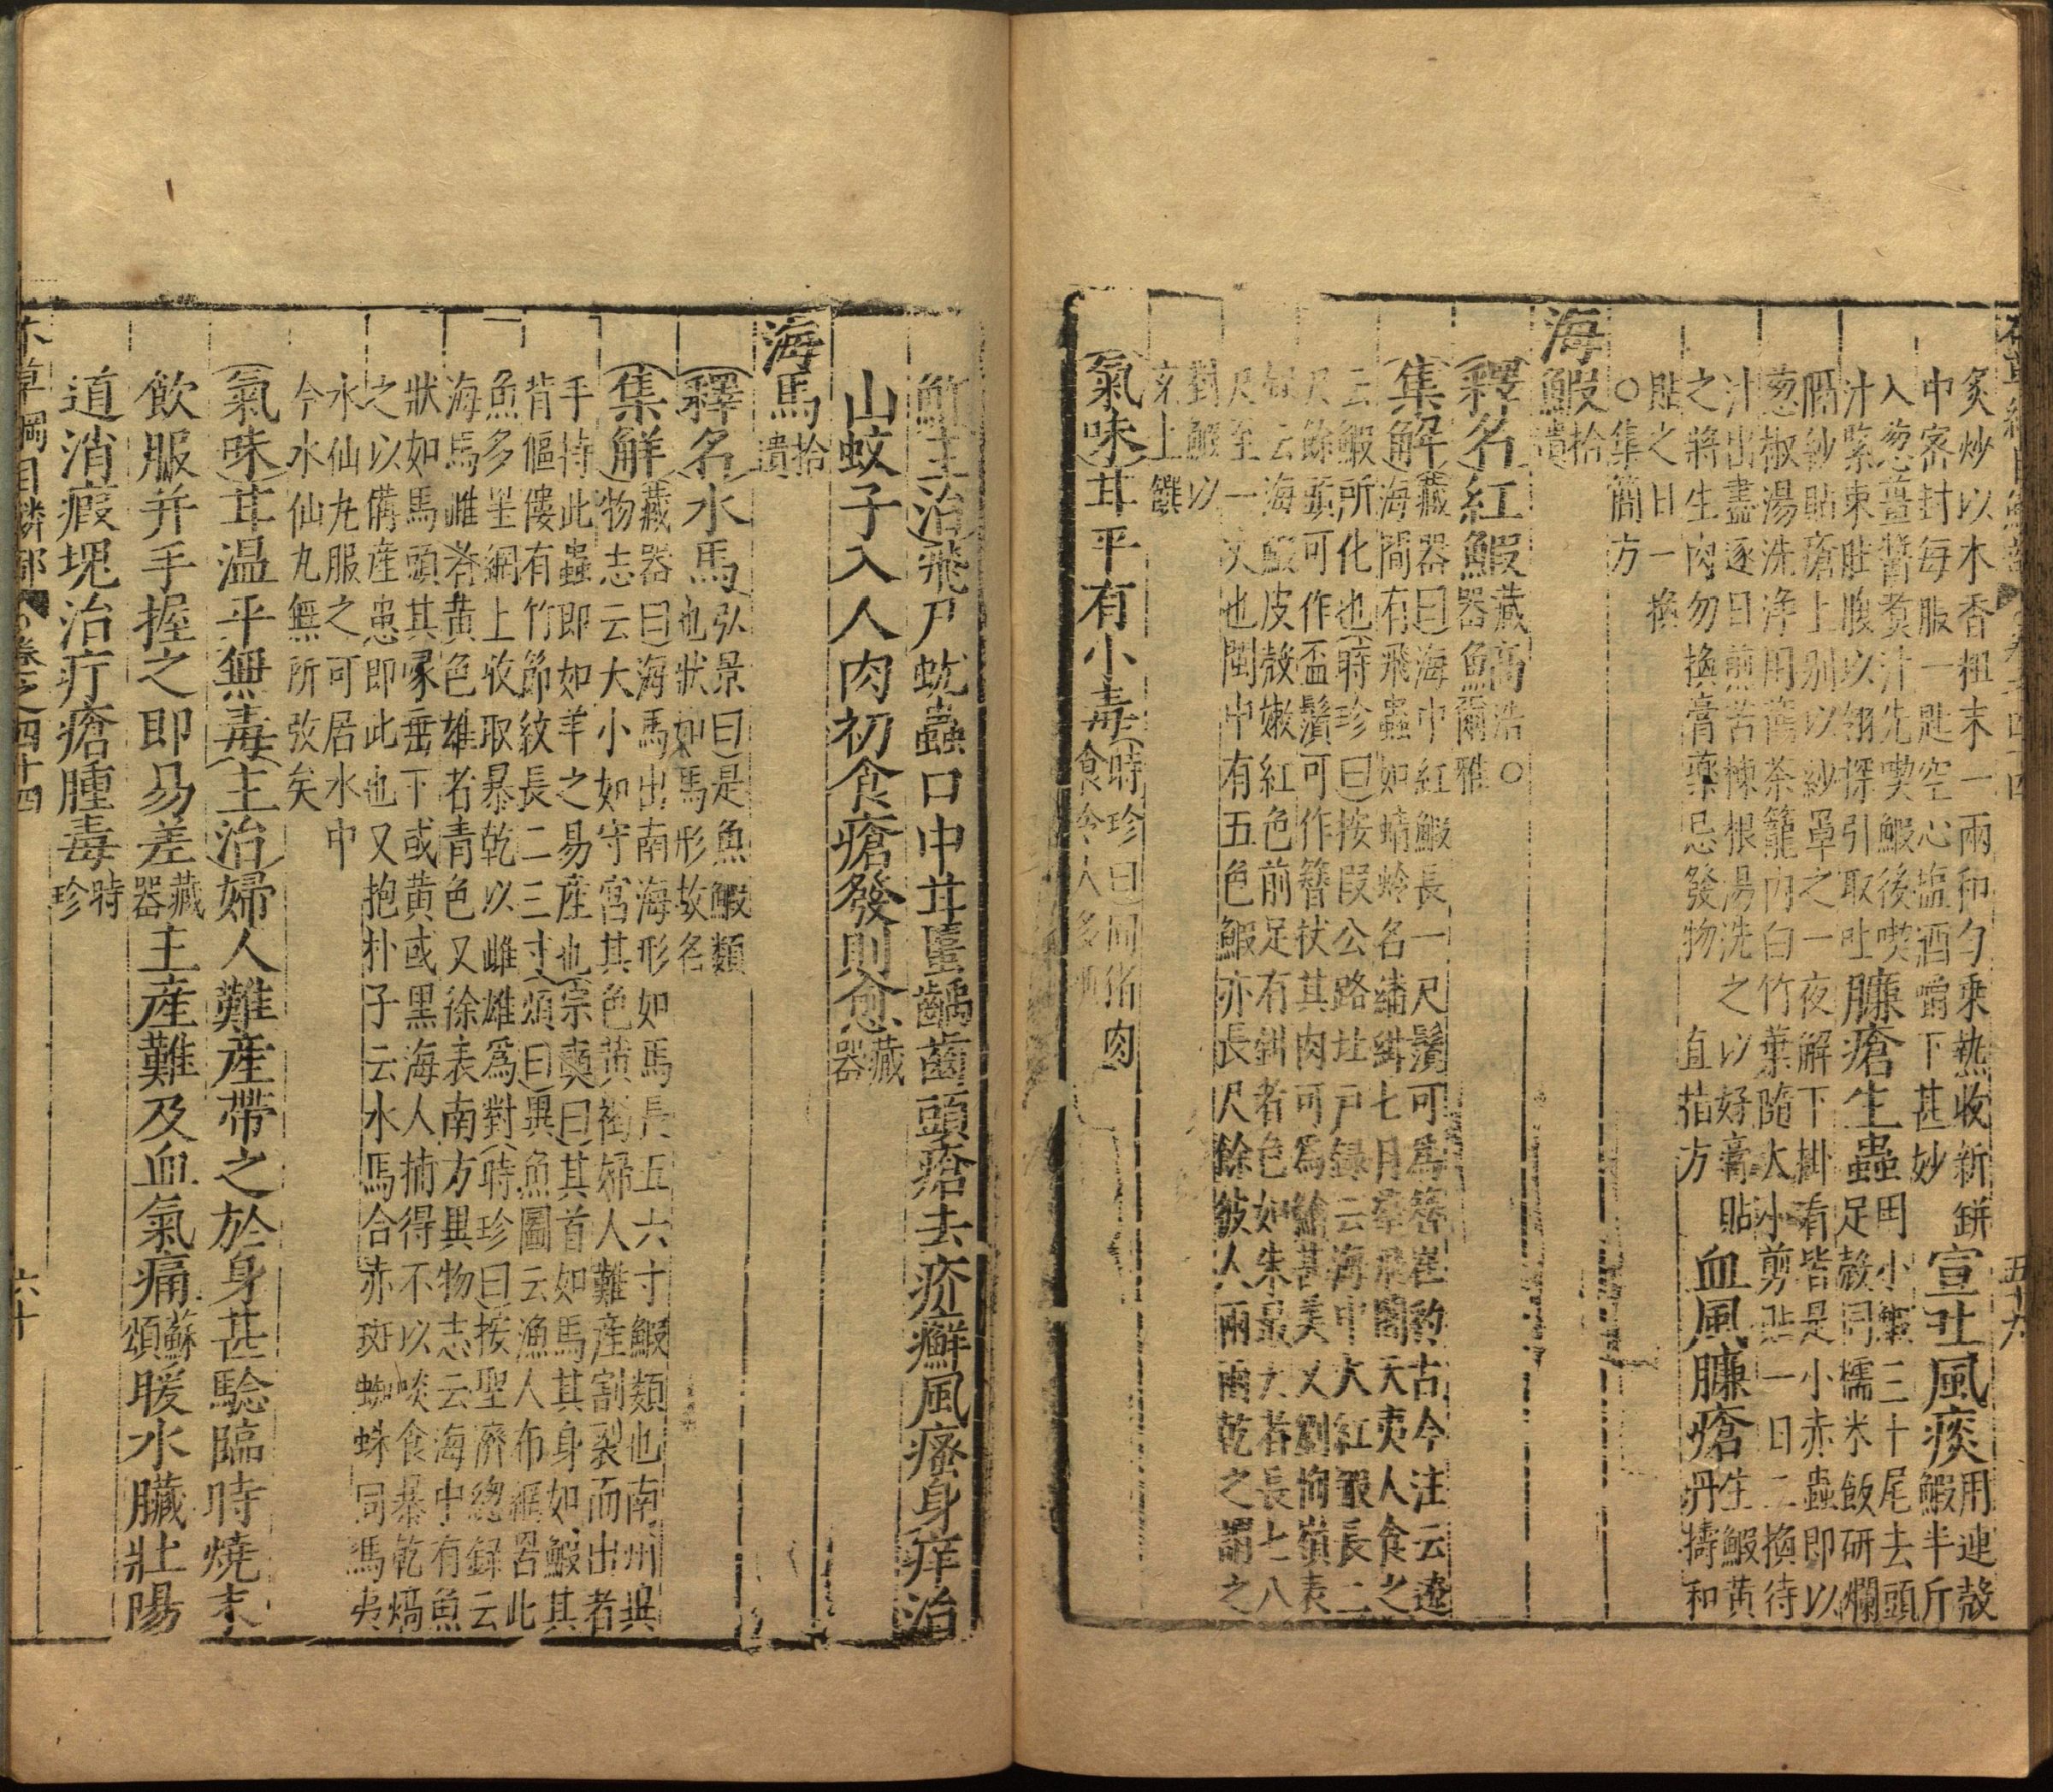 本草綱目鱗部 卷之四十四 五十九
炙炒以木香粗末一兩和勻乘熱收新缾
中密封每服一匙空心鹽酒嚼下甚妙
宣吐風痰
用連殼
鰕半斤
入葱薑醬煑汁先喫鰕後喫
汁緊束肚腹以翎探引取吐
臁瘡生蟲
用小鰕三十尾去頭
足殼同糯米飯研爛
隔紗貼瘡上别以紗罩之一夜解下掛看皆是小赤蟲即以
葱椒湯洗淨用舊茶籠内白竹葉隨大小剪貼一日二換待
汁出盡逐日煎苦楝根湯洗之以好膏貼
之將生肉勿換膏藥忌發物 直指方
血風臁瘡
生鰕黄
丹擣和
貼之日一換
○集簡方
海鰕拾遺
(釋名)紅鰕藏器鰝浩○爾雅
(集解)
(藏器曰)海中紅鰕長一尺鬚可爲簪崔豹古今注云遼
海間有飛蟲如蜻蛉名繙紺七月羣飛闇天夷人食之
云鰕所化也(時珍曰)按段公路北戸録云海中大紅鰕長二
尺餘頭可作盃鬚可作簪杖其肉可爲鱠甚美又劉恂嶺表
録云海鰕皮殼嫩紅色前足有鉗者色如朱最大者長七八
尺至一丈也閩中有五色鰕亦長尺餘彼人兩兩乾之謂之
對鰕以
充上饌
(氣味)甘平有小毒
(時珍曰)同猪肉
食令人多唾
鮓(主治)飛尸蚘蟲口中甘䘌齲齒頭瘡去疥癬風瘙身痒治
山蚊子入人肉初食瘡發則愈藏器
海馬拾遺
(釋名)水馬
(弘景曰)是魚鰕類
也狀如馬形故名
(集解)
(藏器曰)海馬出南海形如馬長五六寸鰕類也南州異
物志云大小如守宮其色黄褐婦人難産割裂而出者
手持此蟲即如羊之易産也(宗奭曰)其首如馬其身如鰕其
背傴僂有竹節紋長二三寸(頌曰)異魚圖云漁人布網罟此
魚多罣網上收取暴乾以雌雄爲對(時珍曰)按聖濟總録云
海馬雌者黄色雄者青色又徐表南方異物志云海中有魚
狀如馬頭其喙垂下或黄或黑海人捕得不以啖食暴乾熇
之以備産患即此也又抱朴子云水馬合赤斑蜘蛛同馮夷
水仙丸服之可居水中
今水仙丸無所攷矣
(氣味)甘温平無毒(主治)婦人難産帶之於身甚驗臨時燒末
飲服并手握之即易差藏器主産難及血氣痛蘇頌暖水臟壯陽
道消瘕塊治疔瘡腫毒時珍
本草綱目鱗部 卷之四十四 六十